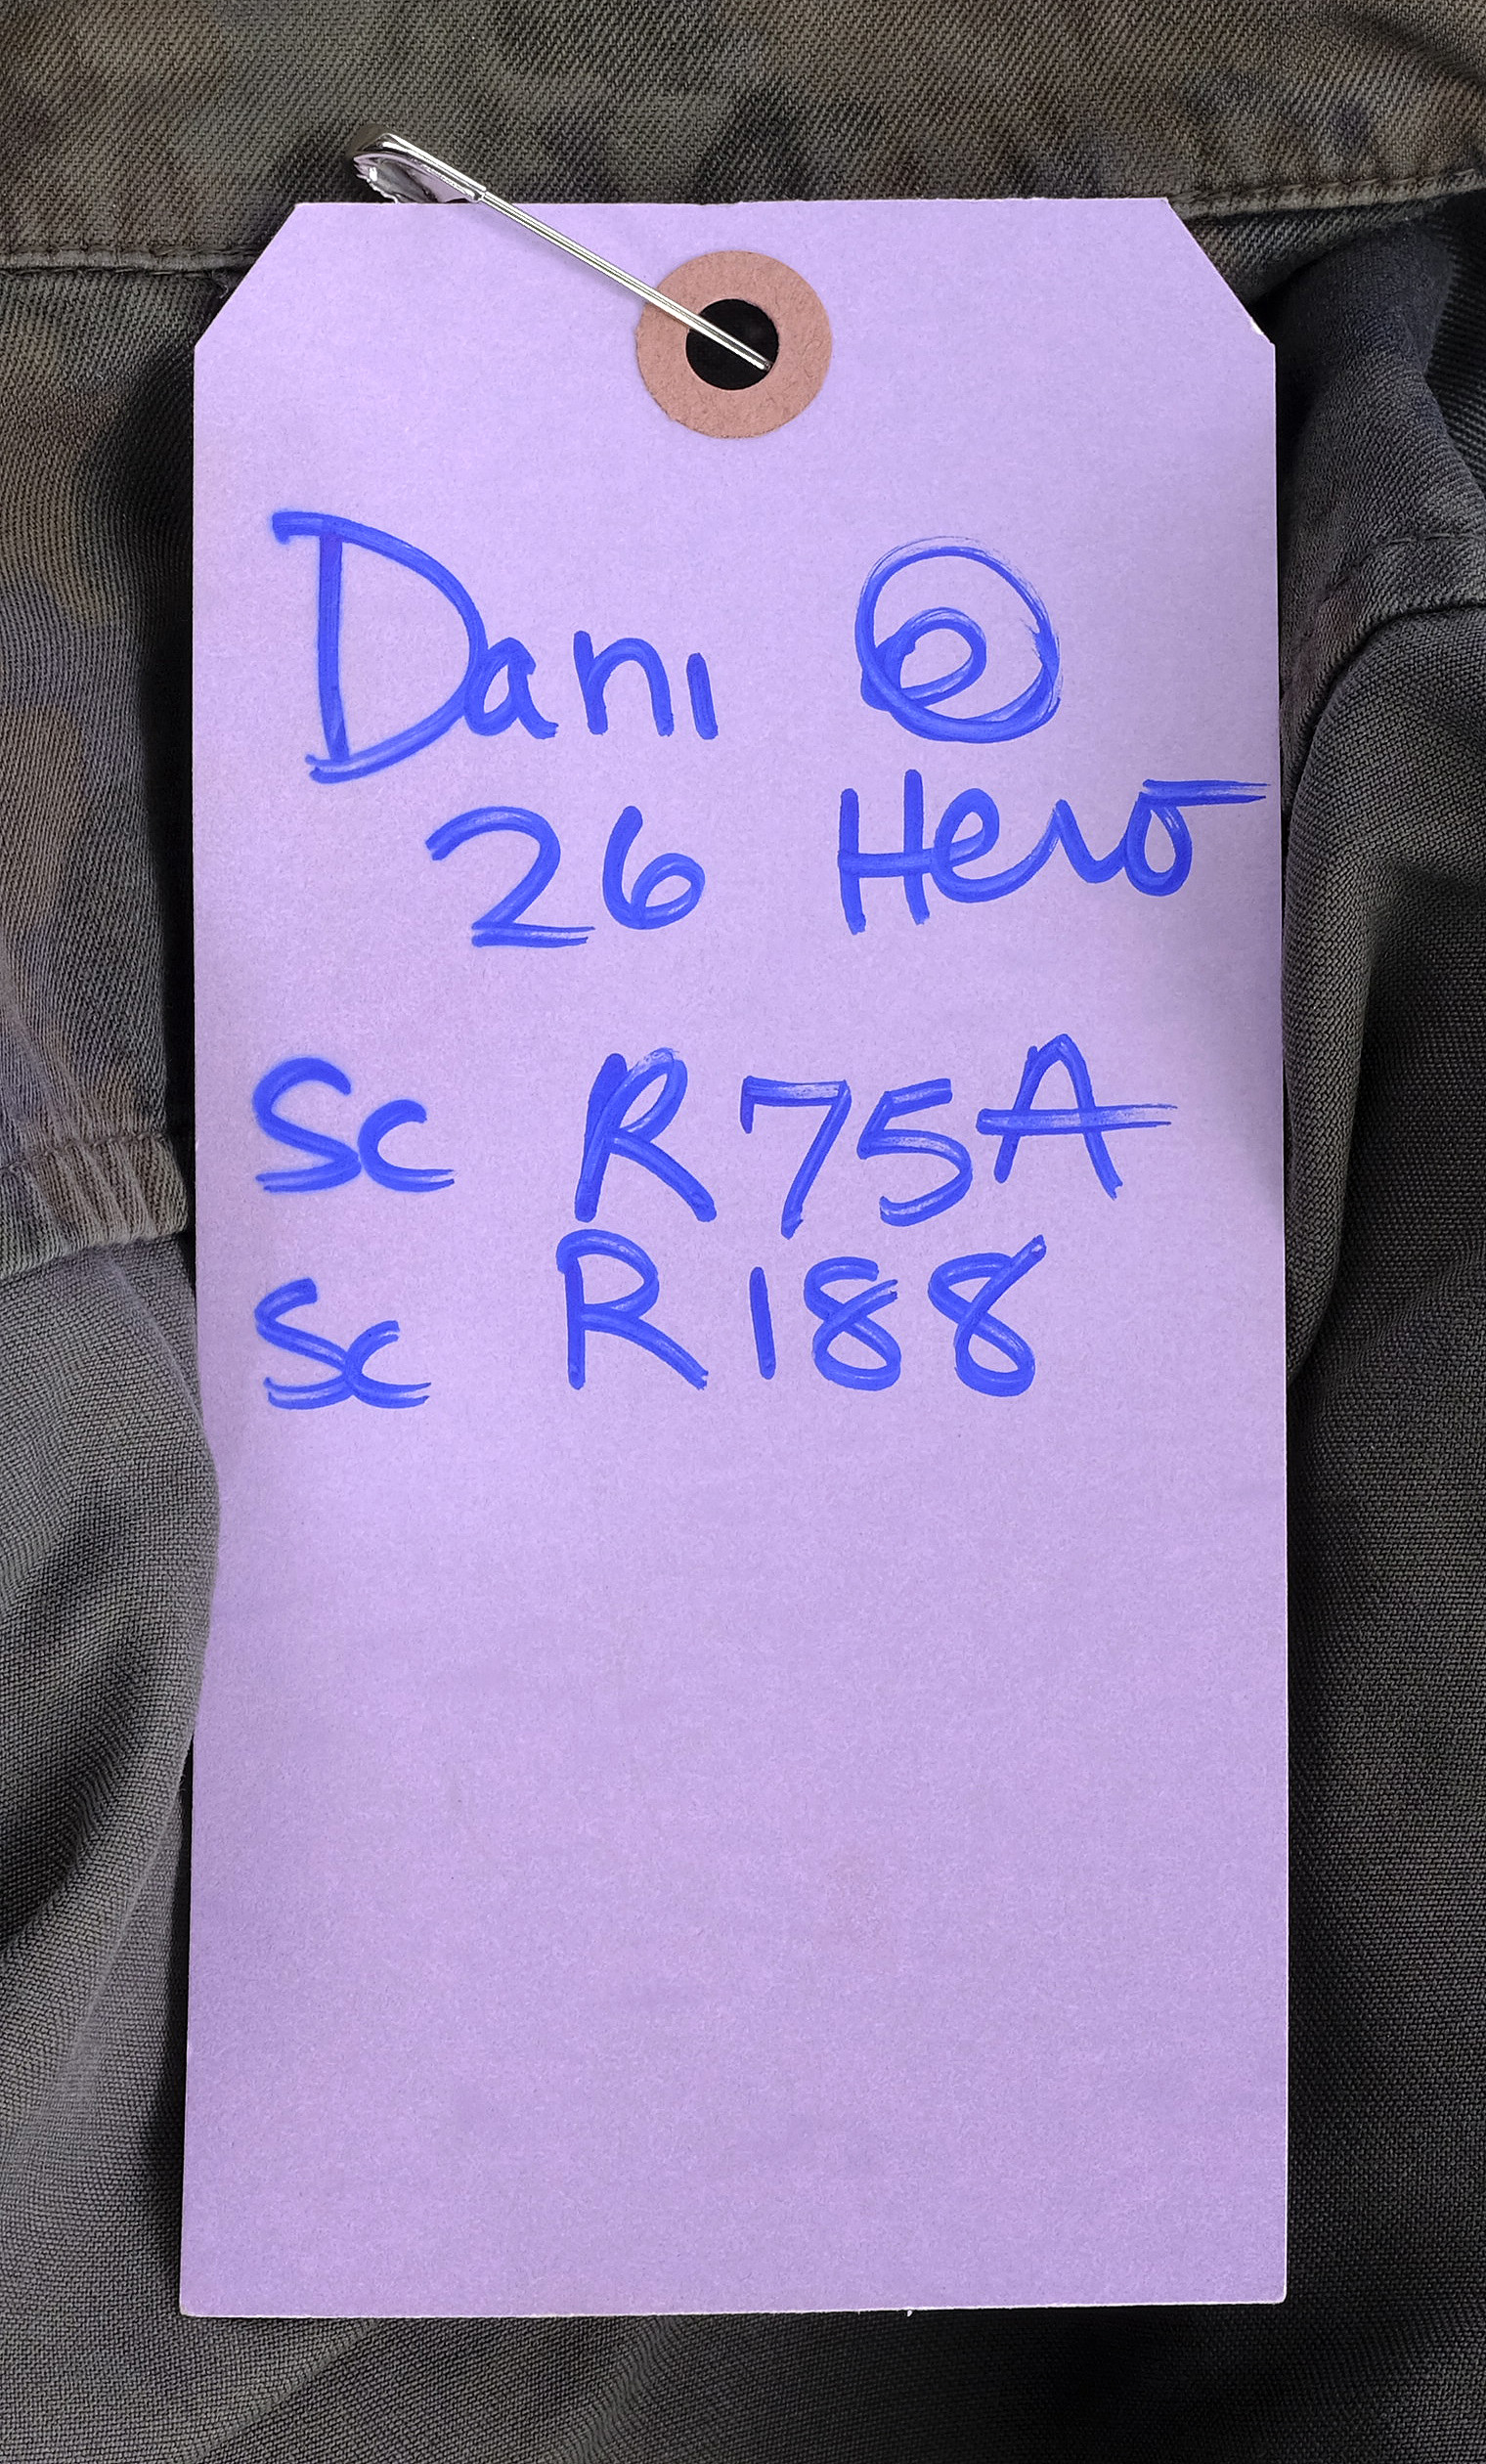 Dani ⓔ
26 Hero
Sc R75A
Sc R188